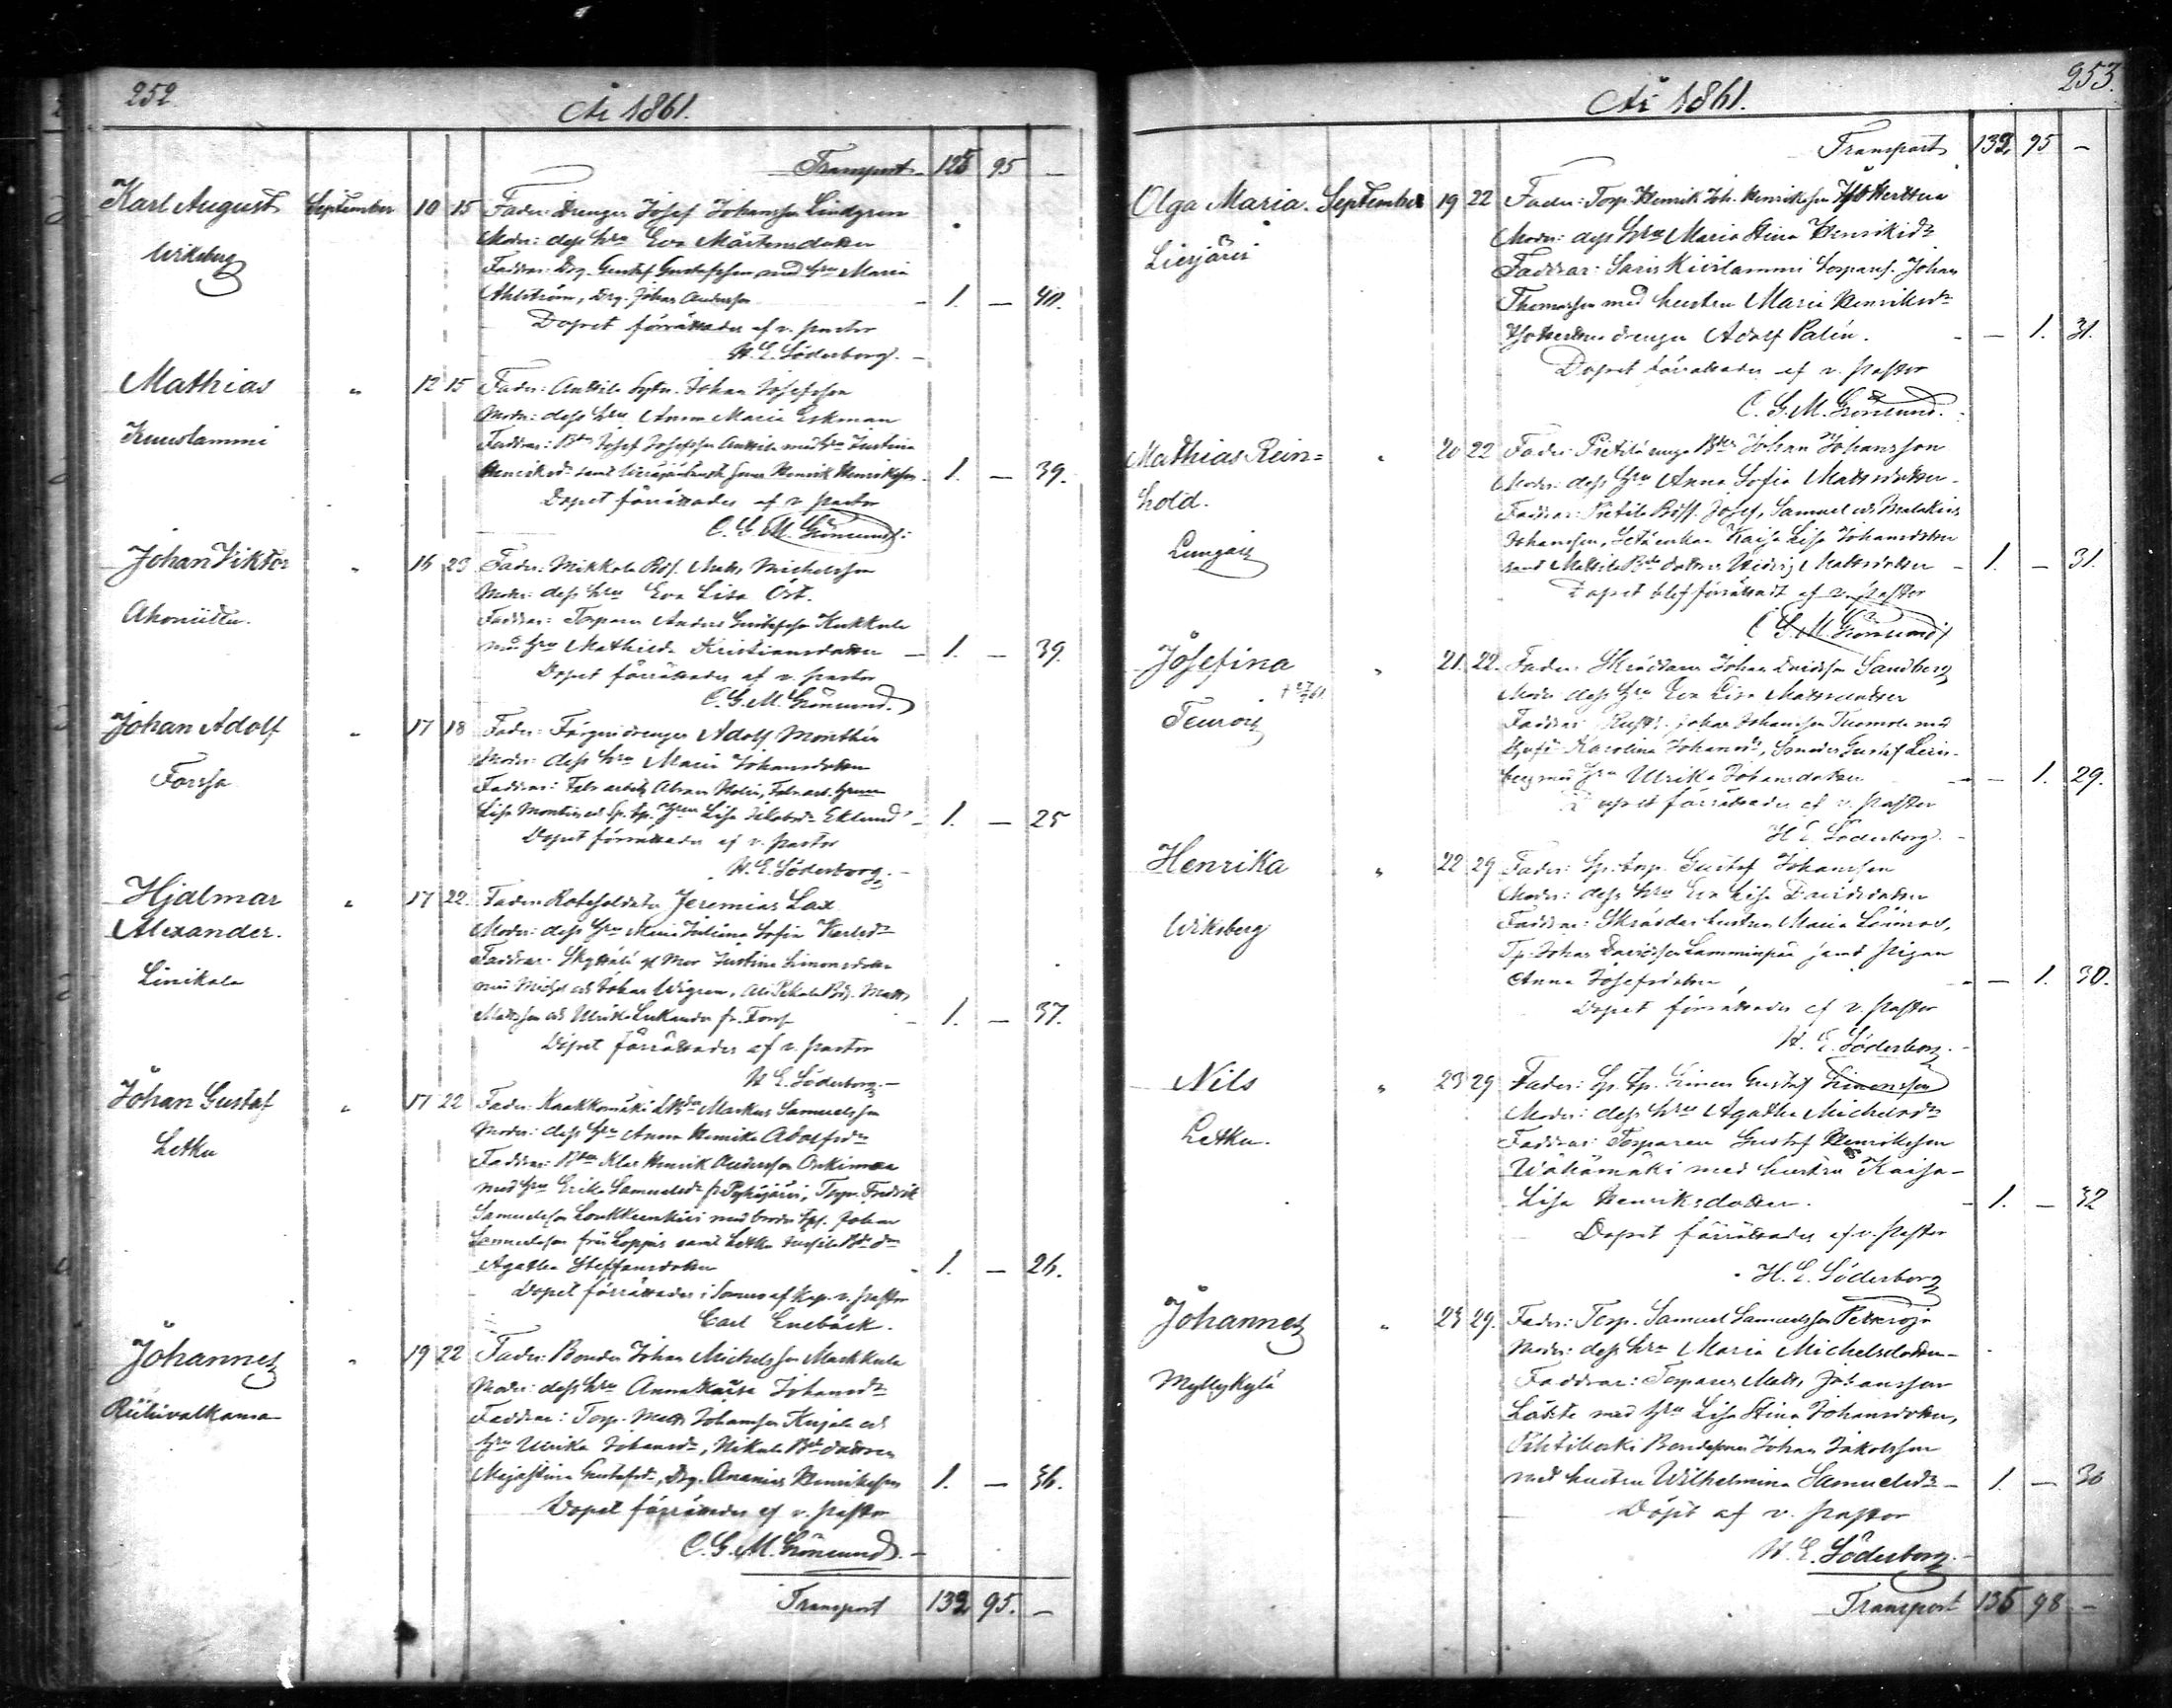 252
År 1861.
Transport 125 95 —
Karl August September 10 15 Fader: Drengen Josef Johansson Lindgren
Moder: dess hru Eva Mårtensdotter
Wiksberg
Faddrar: Drg. Gustaf Gustafsson med hru Maria
Ahlström, Drg. Johan Andersson — 1. — 40.
Dopet förrättades af v. pastor
H. E. Söderborg.
Mathias " 12 15 Fader: Anttila Johan Josefsson
Moder: dess hru Anna Maria Eskman
Kuuslammi
Faddrar: Bdn Josef Josefsson Anttila med hru Justina
Henriksdr samt Henrik Henriksson 1. — 39.
Dopet förrättades af v. pastor
C. G. M. Grönlund.
Johan Viktor " 16 23 Fader: Mikkola Matts Michelsson
Moder: dess hru Eva Lisa Öst.
Ahoniittu.
Faddrar: Torparen Anders Gustafsson Kukkula
med hru Mathilda Kristiansdotter — 1. — 39.
Dopet förrättades af v. pastor
C. G. M. Grönlund.
Johan Adolf " 17 18 Fader: Färgeridrengen Adolf Monthén
Moder: dess hru Maria Johansdotter
Forssa
Faddrar:
Lisa Eklund 1. — 25
Dopet förrättades af v. pastor
H. E. Söderborg.
Hjalmar " 17 22. Fader: Rotesoldaten Jeremias Lax
Alexander.
Moder: dess hru Maria Juliana Sofia Karlsdr
Linikala
Faddrar: Mor Justina Simonsdotter
Johan Wigren, Matts
Mattsson Ulrika fr. Forss — 1. — 37.
Dopet förrättades af v. pastor
H. E. Söderborg. —
Johan Gustaf " 17 22 Fader: Kaakkomäki Markus Samuelsson
Moder: dess hru Anna Henrika Adolfsdr
Letku
Faddrar: Bdn Klas Henrik Andersson Onkimaa
med hru Erika Samuelsdr fr Pyhäjärvi, Torp. Fredrik
Samuelsson med broder Johan
Samuelsson från Loppis samt Letku
Agatha Steffansdotter 1. — 26.
Dopet förrättades i Somero af Kap. v. Pastor
Carl Enebäck.
Johannes " 19 22 Fader: Bonden Johan Michelsson Markkula
Moder: dess hru Anna Kaisa Johansdr
Riihivalkama
Faddrar: Torp. Matts Johansson Kujala
hru Ulrika Johansdr, Nikula Bde dottren
Majastina Gustafsdr, Drg. Ananias Henriksson 1. — 36.
Dopet förrättades af v. pastor
C. G. M. Grönlund. —
Transport 132 95. —
253.
År 1861.
Transport 132 95 —
Olga Maria. September 19 22 Fader: Torp. Henrik Joh. Henriksson
Moder: dess hru Maria Stina Henriksdr
Liesjärvi
Faddrar: Saris Kivilammi Johan
Thomasson med hustru Maria Henriksdr
drengen Adolf Palén. — 1. 31.
Dopet förrättades af v. Pastor
C. G. M. Grönlund.
Mathias Rein= " 20 22 Fader: Bden Johan Johansson
hold.
Moder: dess hru Anna Sofia Mattsdotter
Faddrar: Josef, Samuel och Malakias
Johansson, Kaisa Lisa Johansdotter
Lunga
samt Mattila Bde dotter Mattsdotter — 1. — 31.
Dopet blef förrättadt af v. Pastor
C. G. M. Grönlund
Josefina " 21. 22. Fader: Skräddaren Johan Davidsson Sandberg
Moder: dess hru Eva Lisa Mattsdotter
Teuro
Faddrar: Johan Johansson Tuomola med
Karolina Johansdr, Gustaf
med hru Ulrika Johansdotter — 1. 29.
Dopet förrättades af v. Pastor
H. E. Söderborg. —
Henrika " 22 29 Fader: Sp. torp. Gustaf Johansson
Moder: dess hru Eva Lisa Davidsdotter
Wiksberg
Faddrar: Skräddar hustrun Maria
Tp. Johan Davidsson Lamminpää samt pigan
Anna Josefsdotter — 1. 30.
Dopet förrättades af v. Pastor
H. E. Söderborg. —
Nils " 23 29 Fader: Sp. Tp. Simon Gustaf Simonsson
Moder: dess hru Agatha Michelsdr
Letku.
Faddrar: Torparen Gustaf Henriksson
Wähämäki med hustru Kaisa
Lisa Henriksdotter. 1. — 32
Dopet förrättades af v. Pastor
H. E. Söderborg
Johannes " 23 29. Fader: Torp. Samuel Samuelsson
Moder: dess hru Maria Michelsdotter
Myllykylä
Faddrar: Torparen Matts Johansson
med hru Lisa Stina Johansdotter,
Bondesonen Johan Jakobsson
med hustru Wilhelmina Samuelsdr — 1. — 30
Döpt af v. Pastor
H. E. Söderborg.
Transport 135 98 —